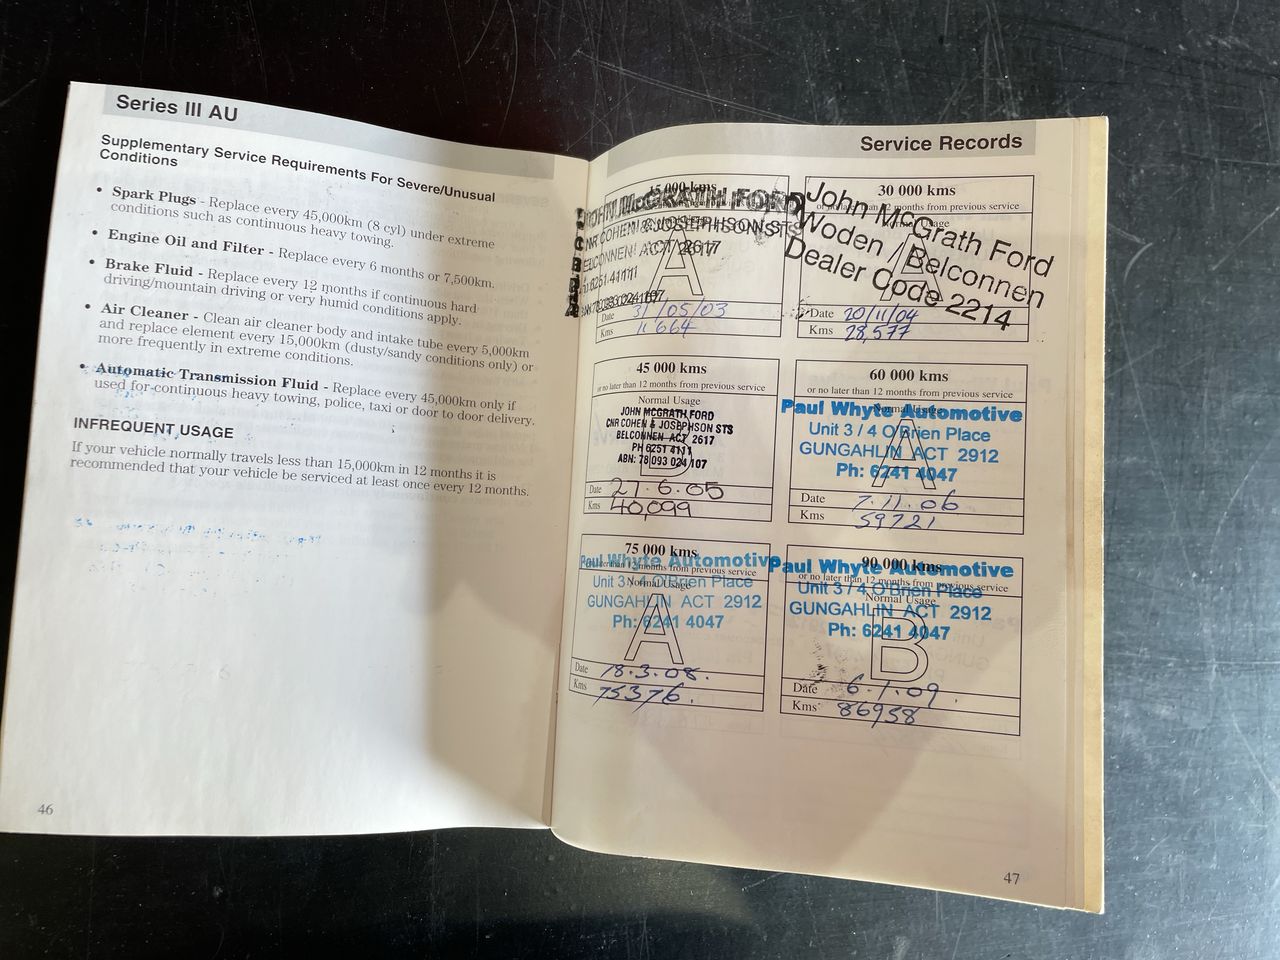 Series III AU
Supplementary Service Requirements For Severe/Unusual
Conditions
• Spark Plugs - Replace every 45,000km (8 cyl) under extreme
conditions such as continuous heavy towing.
• Engine Oil and Filter - Replace every 6 months or 7,500km.
• Brake Fluid - Replace every 12 months if continuous hard
driving/mountain driving or very humid conditions apply.
• Air Cleaner - Clean air cleaner body and intake tube every 5,000km
and replace element every 15,000km (dusty/sandy conditions only) or
more frequently in extreme conditions.
• Automatic Transmission Fluid - Replace every 45,000km only if
used for continuous heavy towing, police, taxi or door to door delivery.
INFREQUENT USAGE
If your vehicle normally travels less than 15,000km in 12 months it is
recommended that your vehicle be serviced at least once every 12 months.
46
Service Records
15 000 kms
JOHN McGRATH FORD
CNR COHEN & JOSEPHSON STS
BELCONNEN ACT 2617
A
Date 31/05/03
Kms 11664
30 000 kms
or no later than 12 months from previous service
John McGrath Ford
Woden / Belconnen
Dealer Code 2214
A
Date 20/11/04
Kms 28,577
45 000 kms
or no later than 12 months from previous service
Normal Usage
JOHN MCGRATH FORD
CNR COHEN & JOSEPHSON STS
BELCONNEN ACT 2617
PH 6251 4111
ABN: 78 093 024 107
B
Date 27.6.05
Kms 40,099
60 000 kms
or no later than 12 months from previous service
Normal Usage
Paul Whyte Automotive
Unit 3 / 4 O'Brien Place
GUNGAHLIN ACT 2912
Ph: 6241 4047
A
Date 7.11.06
Kms 59721
75 000 kms
or no later than 12 months from previous service
Paul Whyte Automotive
Normal Usage
Unit 3 / 4 O'Brien Place
GUNGAHLIN ACT 2912
Ph: 6241 4047
A
Date 18.3.08.
Kms 75376.
90 000 kms
Paul Whyte Automotive
or no later than 12 months from previous service
Unit 3 / 4 O'Brien Place
Normal Usage
GUNGAHLIN ACT 2912
Ph: 6241 4047
B
Date 6.1.09.
Kms 86958
47